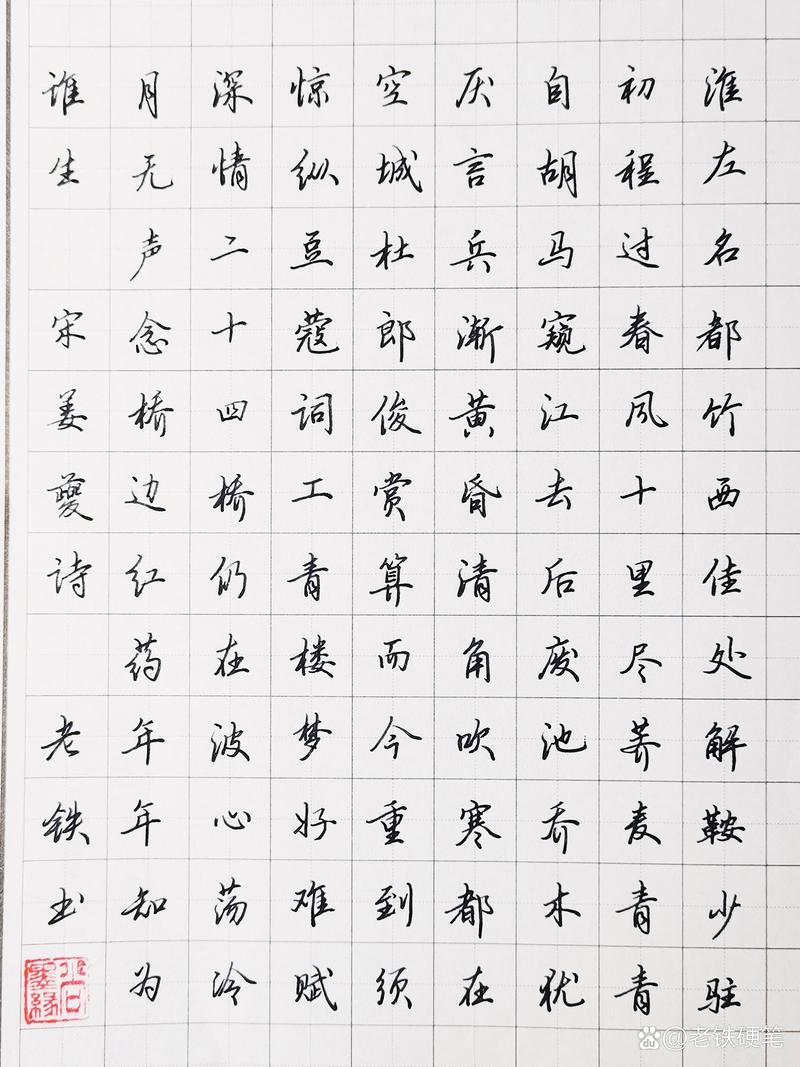 淮左名都竹西佳处解鞍少驻
初程过春风十里尽荠麦青青
自胡马窥江去后废池乔木犹
厌言兵渐黄昏清角吹寒都在
空城杜郎俊赏算而今重到须
惊纵豆蔻词工青楼梦好难赋
深情二十四桥仍在波心荡冷
月无声念桥边红药年年知为
谁生 宋姜夔诗 老铁书
墨缘
du @老铁硬笔